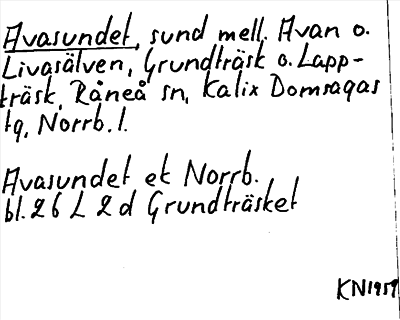 Avasundet, sund mell. Avan o.
Livasälven, Grundträsk o. Lapp-
träsk, Råneå sn, Kalix Domsagas
tg, Norrb. l.
Avasundet ek Norrb.
bl. 26 L 2 d Grundträsket
KN 1959